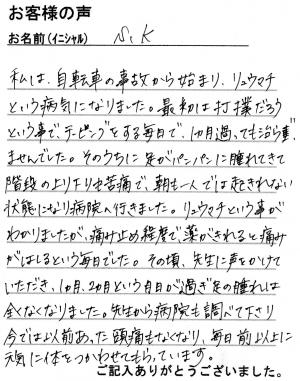 お客様の声
お名前(イニシャル) S.K
私は、自転車の事故から始まり、リュウマチ
という病気になりました。最初は打撲だろう
という事で、テーピングをする毎日で、1ヵ月過っても治らず
ませんでした。そのうちに足がパンパンに腫れてきて
階段の上り下りも苦痛で、朝も一人では起きれない
状態になり病院へ行きました。リュウマチという事が
わかりましたが、痛み止め程度で、薬がきれると痛み
がはしるという毎日でした。その頃、先生に声をかけて
いただき、1ヵ月、2ヵ月という月日が過ぎ足の腫れは
全くなくなりました。先生から病院も調べて下さり
今では以前あった頭痛もなくなり、毎日前以上に
元気に体をつかわせてもらっています。
ご記入ありがとうございました。